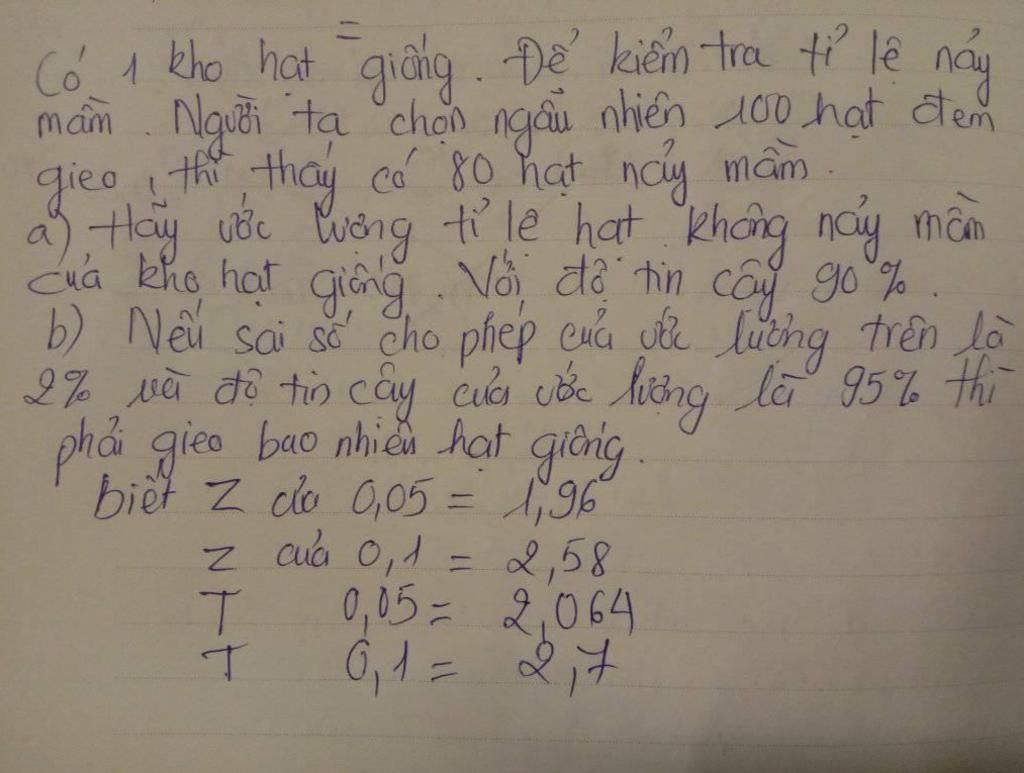 Có 1 kho hạt giống. Để kiểm tra tỉ lệ nảy
mầm. Người ta chọn ngẫu nhiên 100 hạt đem
gieo, thì thấy có 80 hạt nảy mầm.
a) Hãy ước lượng tỉ lệ hạt không nảy mầm
của kho hạt giống. Với độ tin cậy 90%.
b) Nếu sai số cho phép của ước lượng trên là
2% và độ tin cậy của ước lượng là 95% thì
phải gieo bao nhiêu hạt giống.
biết Z của 0,05 = 1,96
Z của 0,1 = 2,58
T 0,05 = 2,064
T 0,1 = 2,7